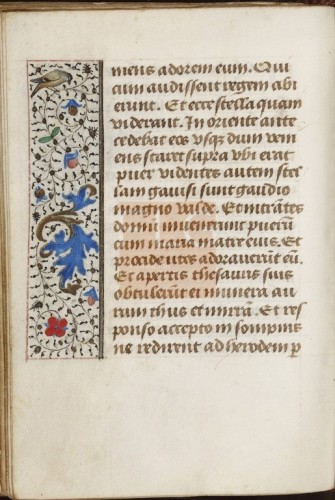 mens adorem eum. Qui
cum audissent regem abi
erunt. Et ecce stella quam
viderant. In oriente ante
cedebat eos vsq̃ dum veni
ens staret supra vbi erat
puer videntes autem stel
lam gauisi sunt gaudio
magno valde. Et intrãtes
domũ inuenerunt puerũ
cum maria matre eius. Et
procidẽtes adorauerũt eũ.
Et apertis thesauris suis
obtulerũt ei munera au
rum thus et mirrã. Et res
ponso accepto in sompnis
ne redirent ad herodem p